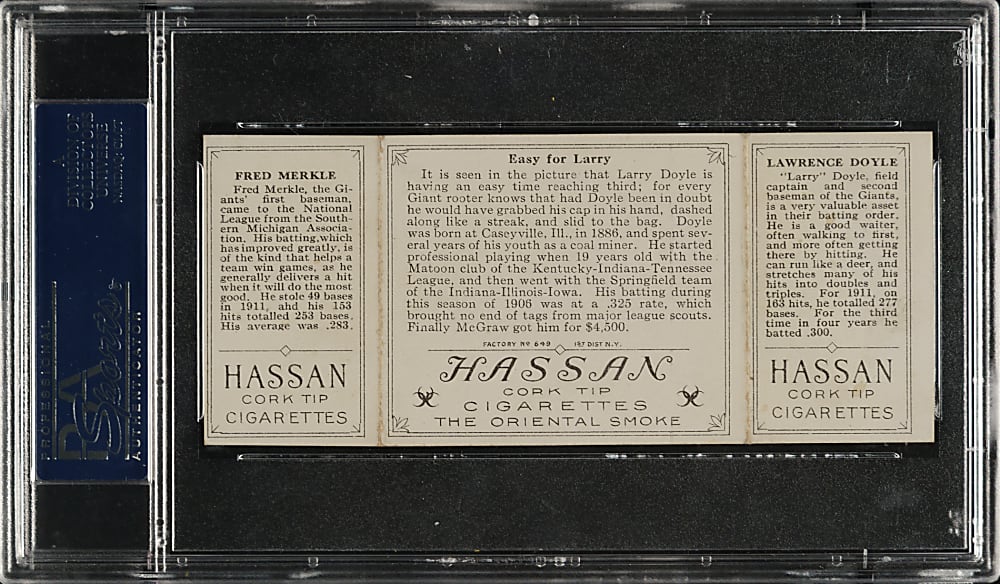 FRED MERKLE
Fred Merkle, the Gi-
ants' first baseman,
came to the National
League from the South-
ern Michigan Associa-
tion. His batting, which
has improved greatly, is
of the kind that helps a
team win games, as he
generally delivers a hit
when it will do the most
good. He stole 49 bases
in 1911, and his 153
hits totalled 253 bases.
His average was .283.
HASSAN
CORK TIP
CIGARETTES
Easy for Larry
It is seen in the picture that Larry Doyle is
having an easy time reaching third; for every
Giant rooter knows that had Doyle been in doubt
he would have grabbed his cap in his hand, dashed
along like a streak, and slid to the bag. Doyle
was born at Caseyville, Ill., in 1886, and spent sev-
eral years of his youth as a coal miner. He started
professional playing when 19 years old with the
Matoon club of the Kentucky-Indiana-Tennessee
League, and then went with the Springfield team
of the Indiana-Illinois-Iowa. His batting during
this season of 1906 was at a .325 rate, which
brought no end of tags from major league scouts.
Finally McGraw got him for $4,500.
FACTORY Nº 649 1ST DIST N.Y.
HASSAN
CORK TIP
CIGARETTES
THE ORIENTAL SMOKE
LAWRENCE DOYLE
"Larry" Doyle, field
captain and second
baseman of the Giants,
is a very valuable asset
in their batting order.
He is a good waiter,
often walking to first,
and more often getting
there by hitting. He
can run like a deer, and
stretches many of his
hits into doubles and
triples. For 1911, on
163 hits, he totalled 277
bases. For the third
time in four years he
batted .300.
HASSAN
CORK TIP
CIGARETTES
DIVISION OF
COLLECTORS
UNIVERSE
NASDAQ: CLCT
PROFESSIONAL
PSA
Sports
AUTHENTICATOR